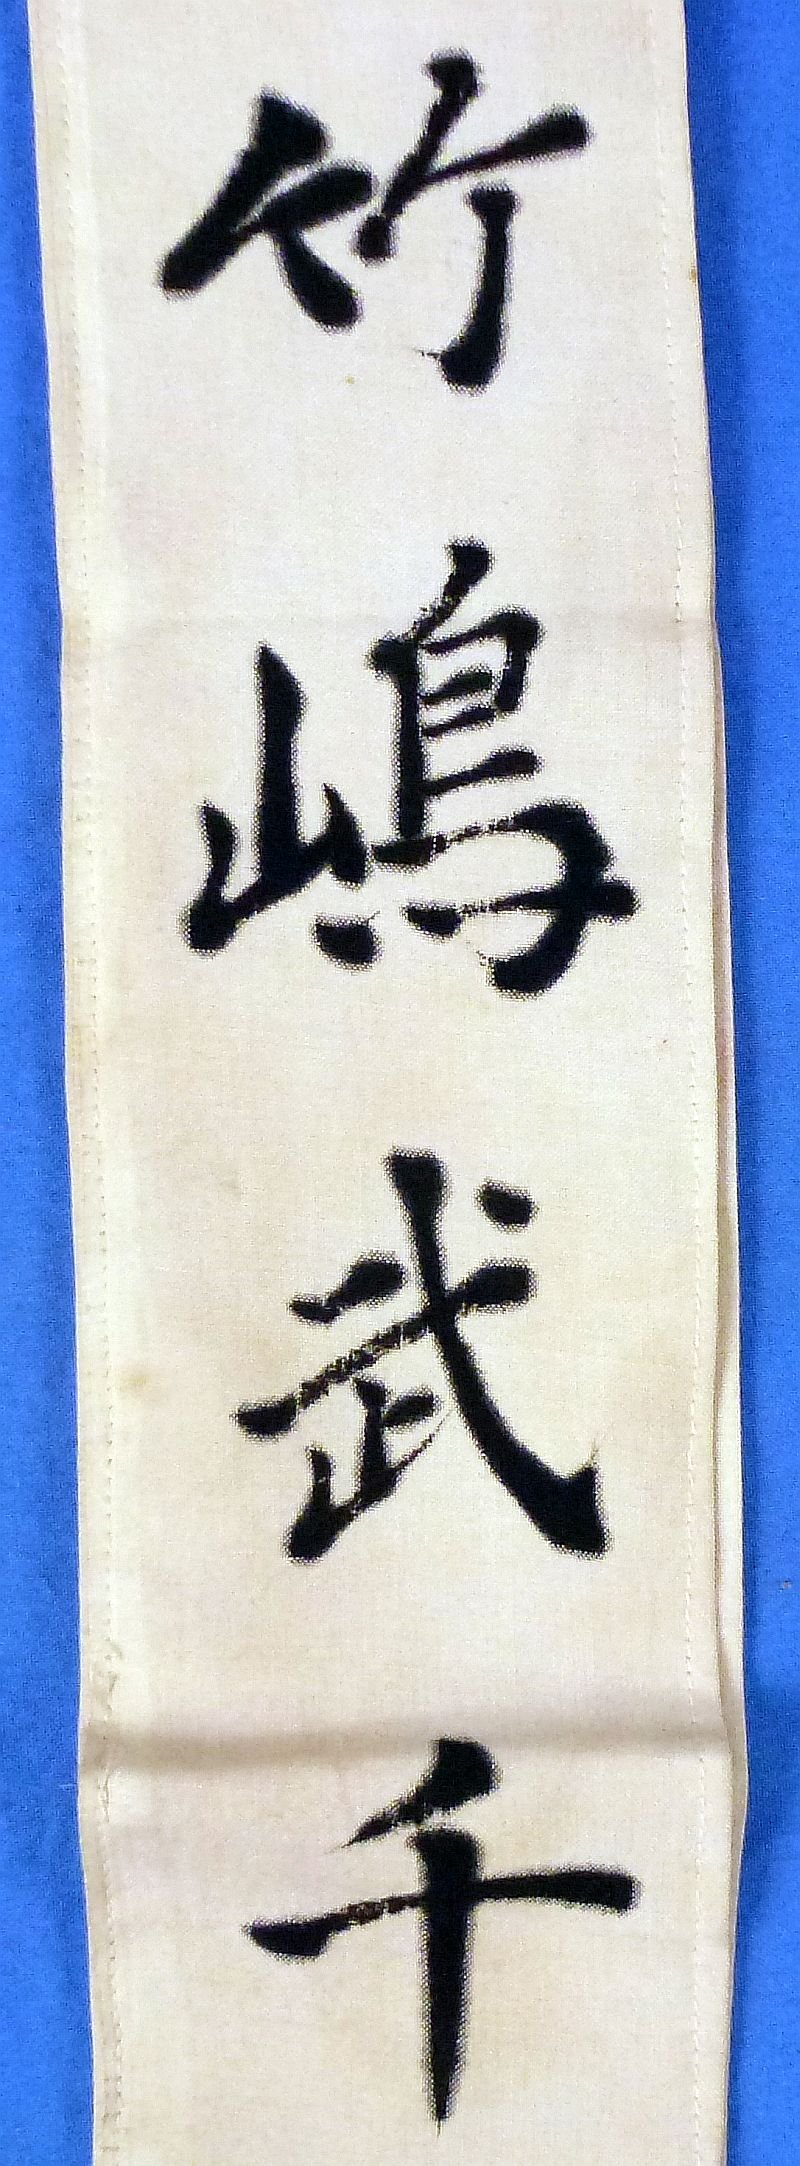 竹嶋武千